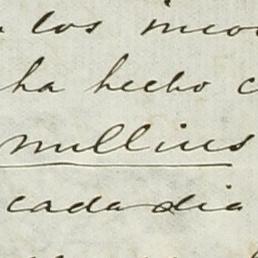 los incon
ha hecho c
nullius
cada dia